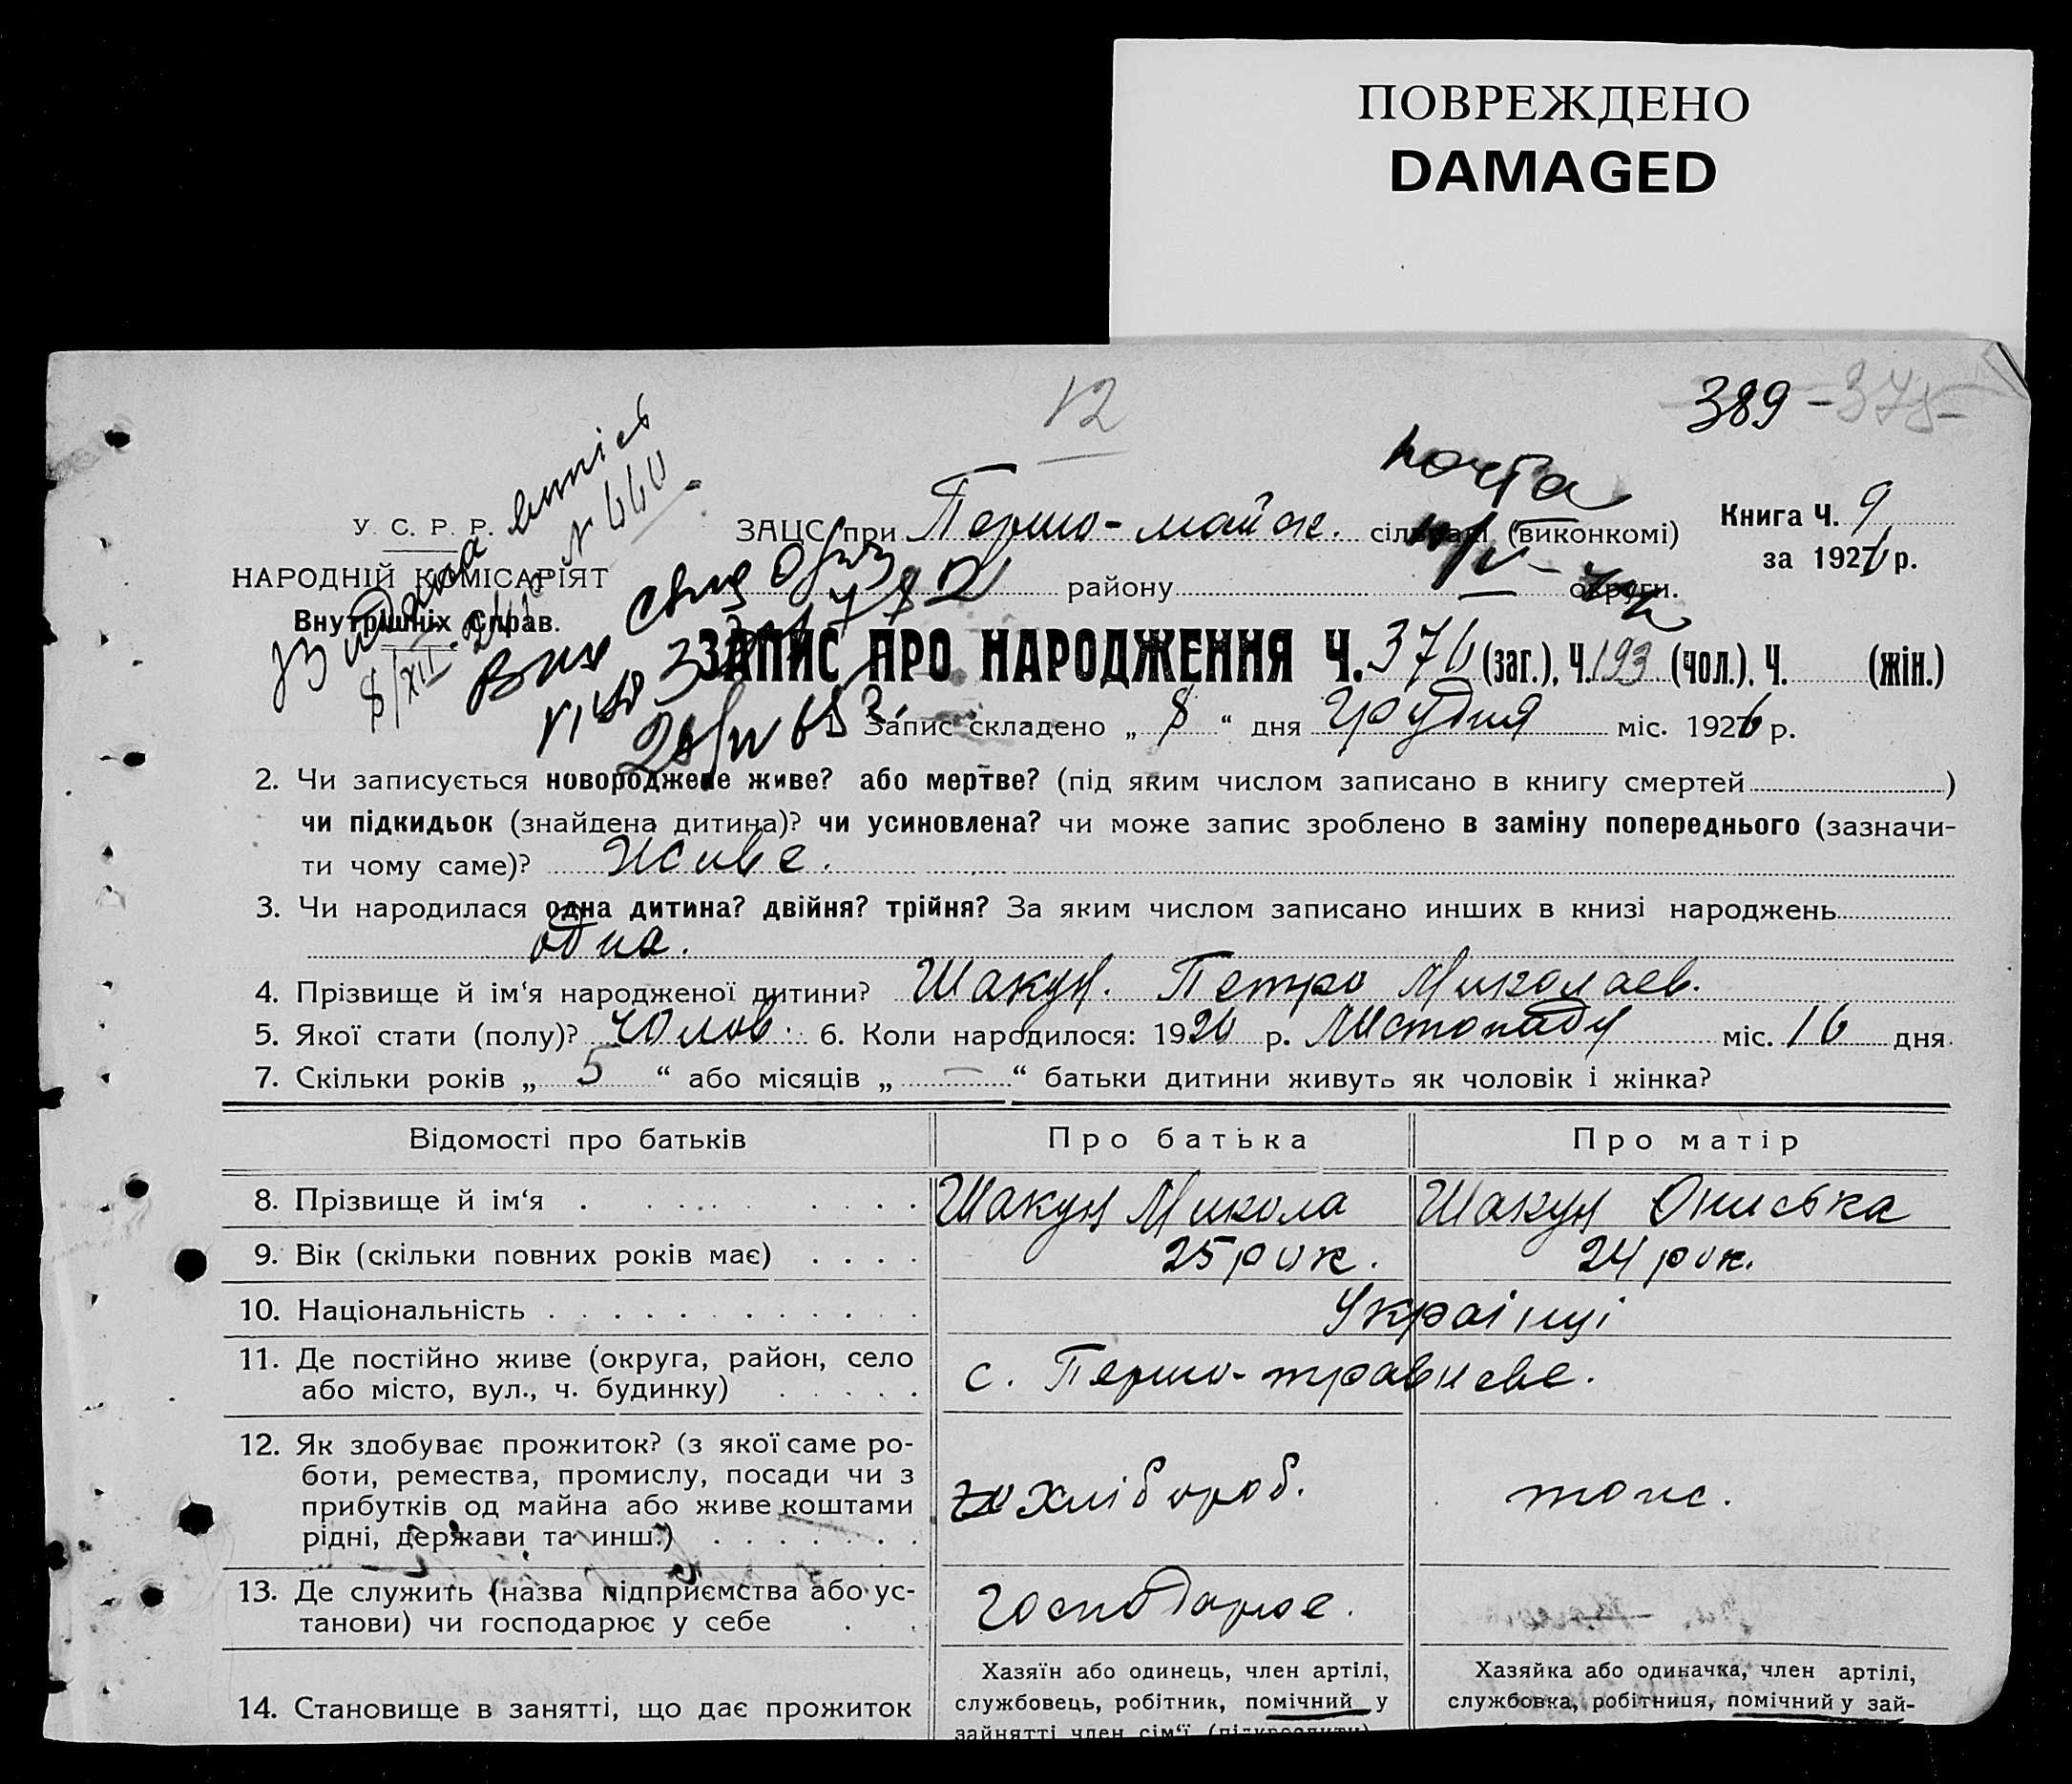 ПОВРЕЖДЕНО
DAMAGED
12
389 - 375
почта
У. С. Р. Р.
НАРОДНІЙ КОМІСАРІЯТ
Внутрішніх Справ.
Видана випись
8/XII
N 660
ЗАЦС при Першо-майск. сільраді (виконкомі)
району округи.
Книга Ч. 9
за 1926 р.
ЗАПИС ПРО НАРОДЖЕННЯ Ч. 376 (заг.), Ч. 193 (чол.), Ч. (жін.)
1. Запис складено „ 8 “ дня Грудня міс. 1926 р.
2. Чи записується новороджене живе? або мертве? (під яким числом записано в книгу смертей )
чи підкидьок (знайдена дитина)? чи усиновлена? чи може запис зроблено в заміну попереднього (зазначи-
ти чому саме)? Живе.
3. Чи народилася одна дитина? двійня? трійня? За яким числом записано инших в книзі народжень
одна.
4. Прізвище й ім‘я народженої дитини? Шакун. Петро Миколаев.
5. Якої стати (полу)? Чолов. 6. Коли народилося: 1926 р. Листопаду міс. 16 дня
7. Скільки років „ 5 “ або місяців „ — “ батьки дитини живуть як чоловік і жінка?
Відомості про батьків Про батька Про матір
8. Прізвище й ім‘я Шакун Микола Шакун Ониська
9. Вік (скільки повних років має) 25 рок. 24 рок.
10. Національність Українці
11. Де постійно живе (округа, район, село
або місто, вул., ч. будинку) с. Першо-травневе.
12. Як здобуває прожиток? (з якої саме ро-
боти, ремества, промислу, посади чи з
прибутків од майна або живе коштами
рідні, держави та инш.) хлібороб. топс.
13. Де служить (назва підприємства або ус-
танови) чи господарює у себе Господарює.
14. Становище в занятті, що дає прожиток
Хазяїн або одинець, член артілі,
службовець, робітник, помічний у
зайнятті член сім‘ї (підкреслити)
Хазяйка або одиначка, член артілі,
службовка, робітниця, помічний у зай-